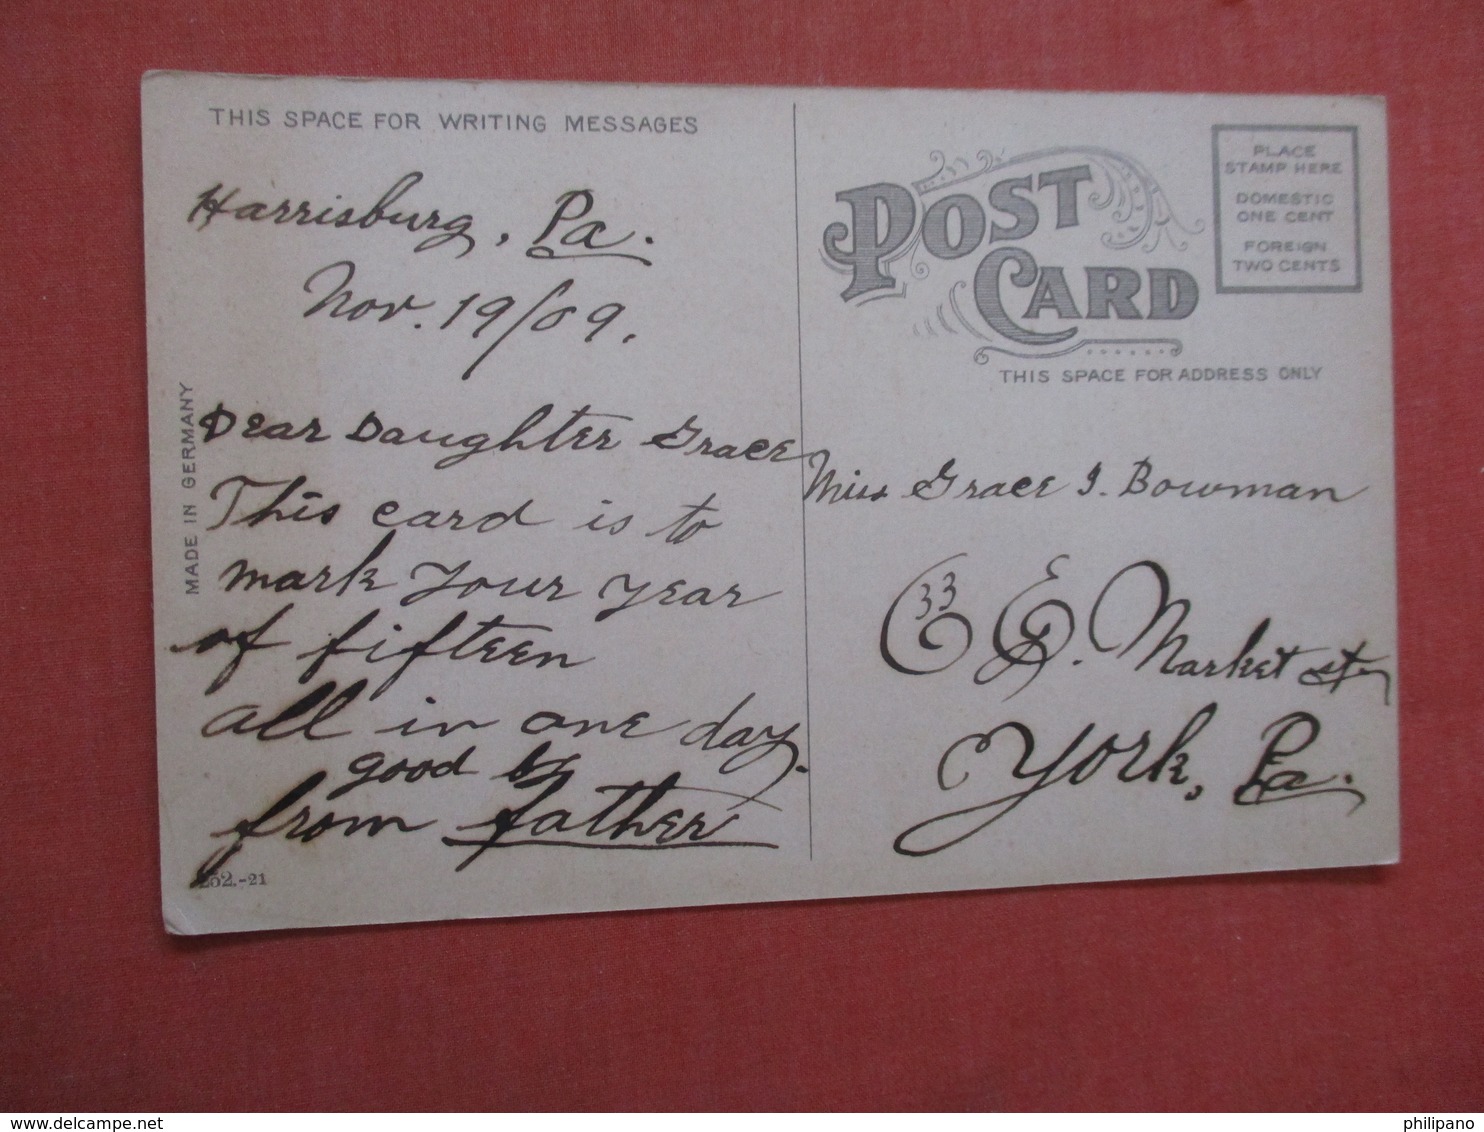 THIS SPACE FOR WRITING MESSAGES
Harrisburg, Pa.
Nov. 19/09.
Dear Daughter Grace
This card is to
mark your year
of fifteen
all in one day.
good by
from father
MADE IN GERMANY
252.-21
POST
CARD
PLACE
STAMP HERE
DOMESTIC
ONE CENT
FOREIGN
TWO CENTS
THIS SPACE FOR ADDRESS ONLY
Miss Grace I. Bowman
33 E. Market St
York, Pa.
delcampe.net
philipano